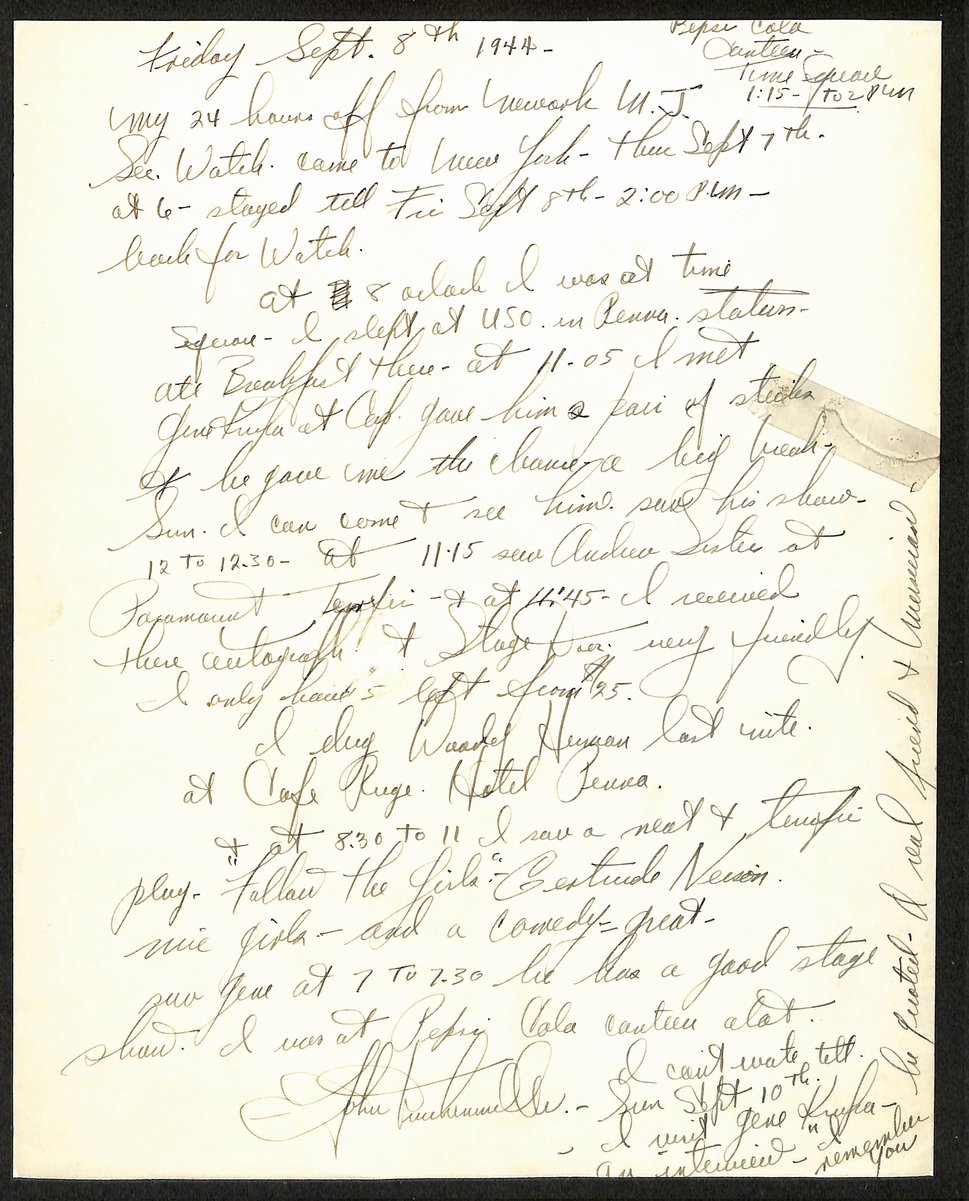 Pepsi Cola
Canteen -
Time Square
1:15 - TO 2 P.M
Friday Sept. 8th 1944 -
My 24 hours off from Newark N.J.
Sec. Watch. came to New York - Thur Sept 7th.
at 6 - stayed till Fri Sept 8th - 2:00 P.M -
back for Watch.
at 8 oclock I was at Time
Square - I slept at USO. in Penna. station -
ate Breakfast there - at 11-05 I met
Gene Krupa at Cap. gave him a pair of sticks
& he gave me the chance - a big break -
Sun. I can come & see him. saw his show -
12 TO 12.30 - at 11.15 saw Andrew Sisters at
Paramount Terrific - & at 11:45 - I received
there autograph at Stage Door. very friendly
I only have $5 left from $25.
I dug Woody Herman last nite.
at Cafe Ruge. Hotel Penna.
& at 8.30 TO 11 I saw a neat & terrific
play - "Follow The Girls" - Gertrude Neisen.
nice girls - and a comedy - great -
saw Gene at 7 TO 7.30 he has a good stage
show. I was at Pepsi Cola canteen alot.
John
I can't wate till.
Sun Sept 10th.
I visit Gene Krupa -
an interview - "I
remember
You
he quoted - A real friend & Musician -